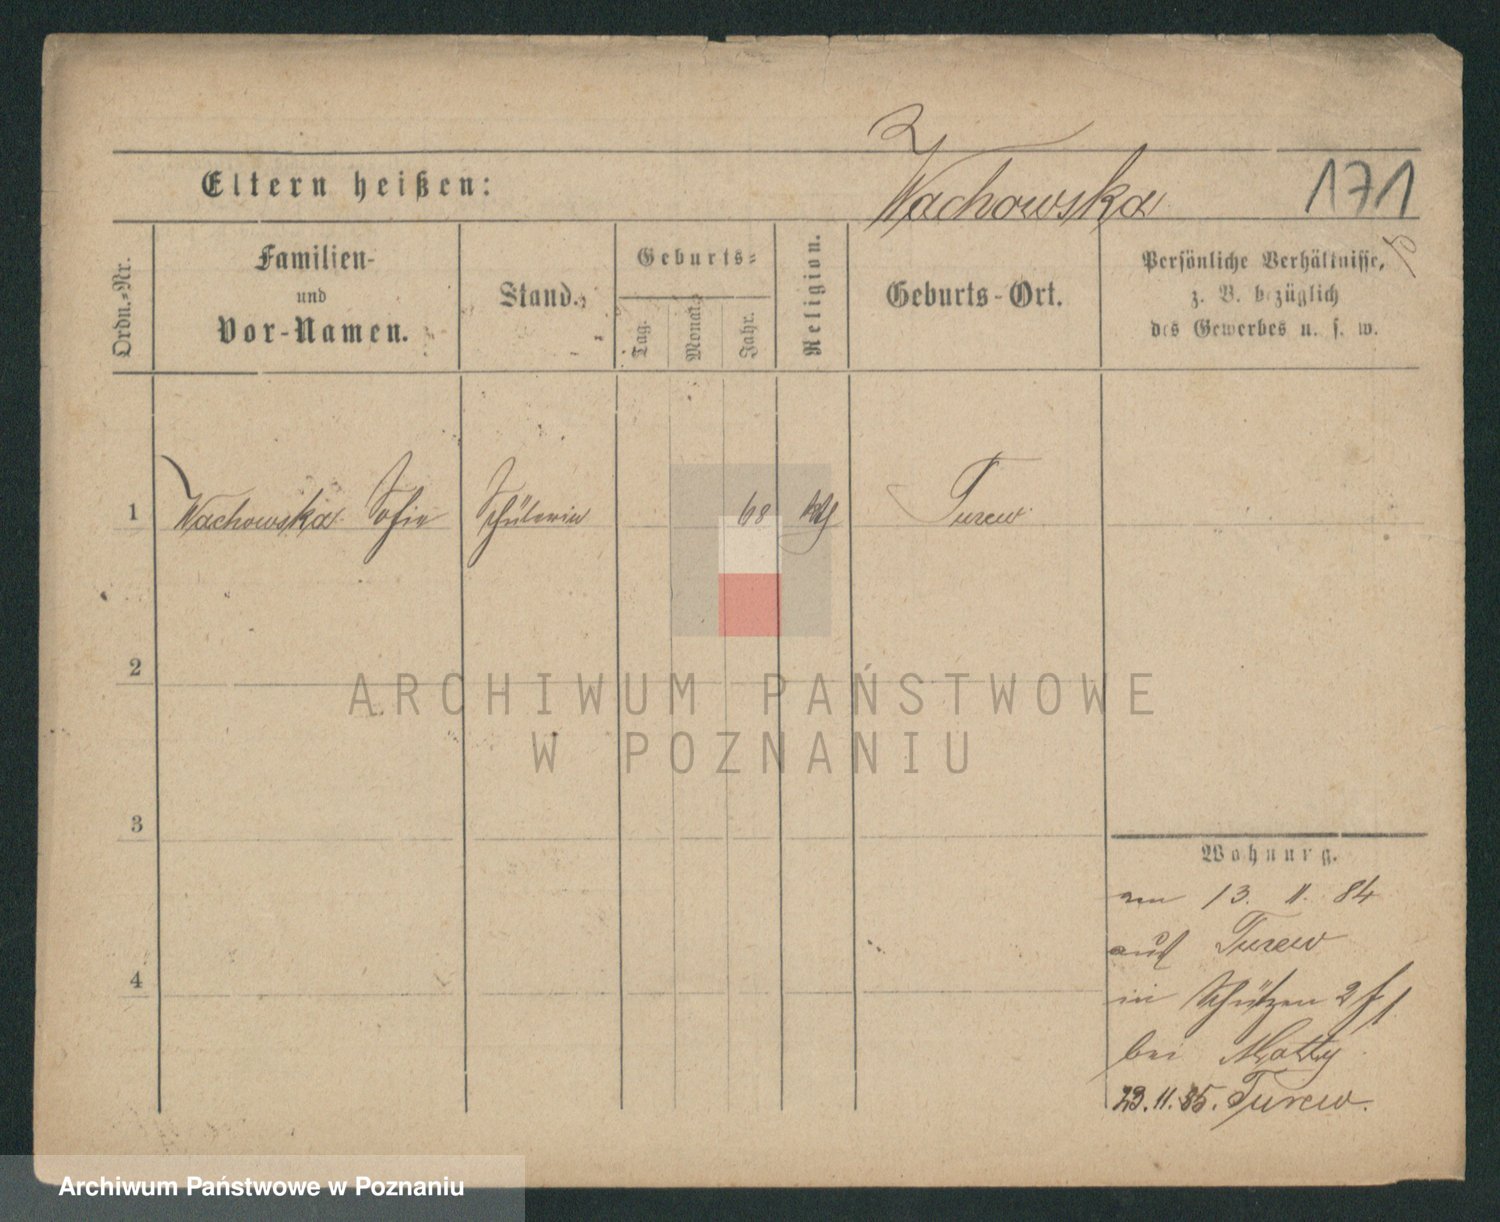 Wachowska
171
Eltern heißen:
Ordn.-Nr.
Familien-
und
Vor-Namen.
Stand.
Geburts-
Tag.
Monat.
Jahr.
Religion.
Geburts-Ort.
Persönliche Verhältnisse,
z. B. bezüglich
des Gewerbes u. s. w.
1 Wachowska Sofie Schülerin 68 kth Turew
2
3
4
ARCHIWUM PAŃSTWOWE
W POZNANIU
Wohnung.
am 13. 11. 84
aus Turew
in Schützen 2
bei Motty
23.11.85. Turew.
Archiwum Państwowe w Poznaniu